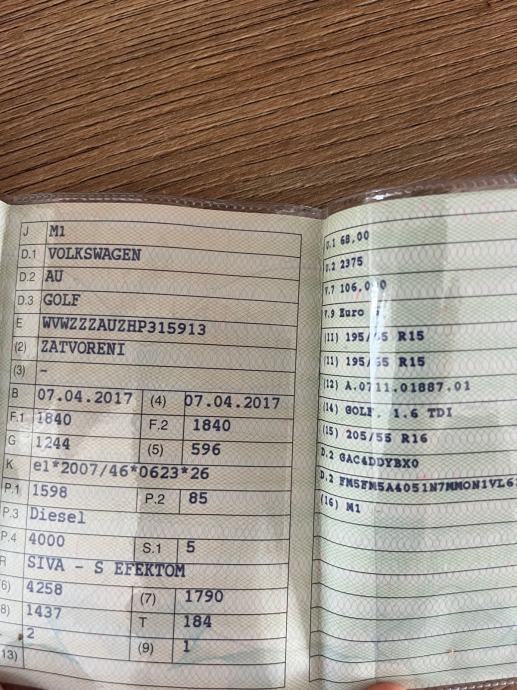 J M1
D.1 VOLKSWAGEN
D.2 AU
D.3 GOLF
E WVWZZZAUZHP315913
(2) ZATVORENI
(3) –
B 07.04.2017 (4) 07.04.2017
F.1 1840 F.2 1840
G 1244 (5) 596
K e1*2007/46*0623*26
P.1 1598 P.2 85
P.3 Diesel
P.4 4000 S.1 5
R SIVA - S EFEKTOM
6) 4258 (7) 1790
8) 1437 T 184
2 (9) 1
13)
U.1 68,00
U.2 2375
V.7
V.9 Euro
(11) R15
(11) R15
(12) A.0711.01887.01
(14) GOLF. 1.6 TDI
(15) 205/55 R16
D.2 GAC4DDYBX0
D.2
(16) M1